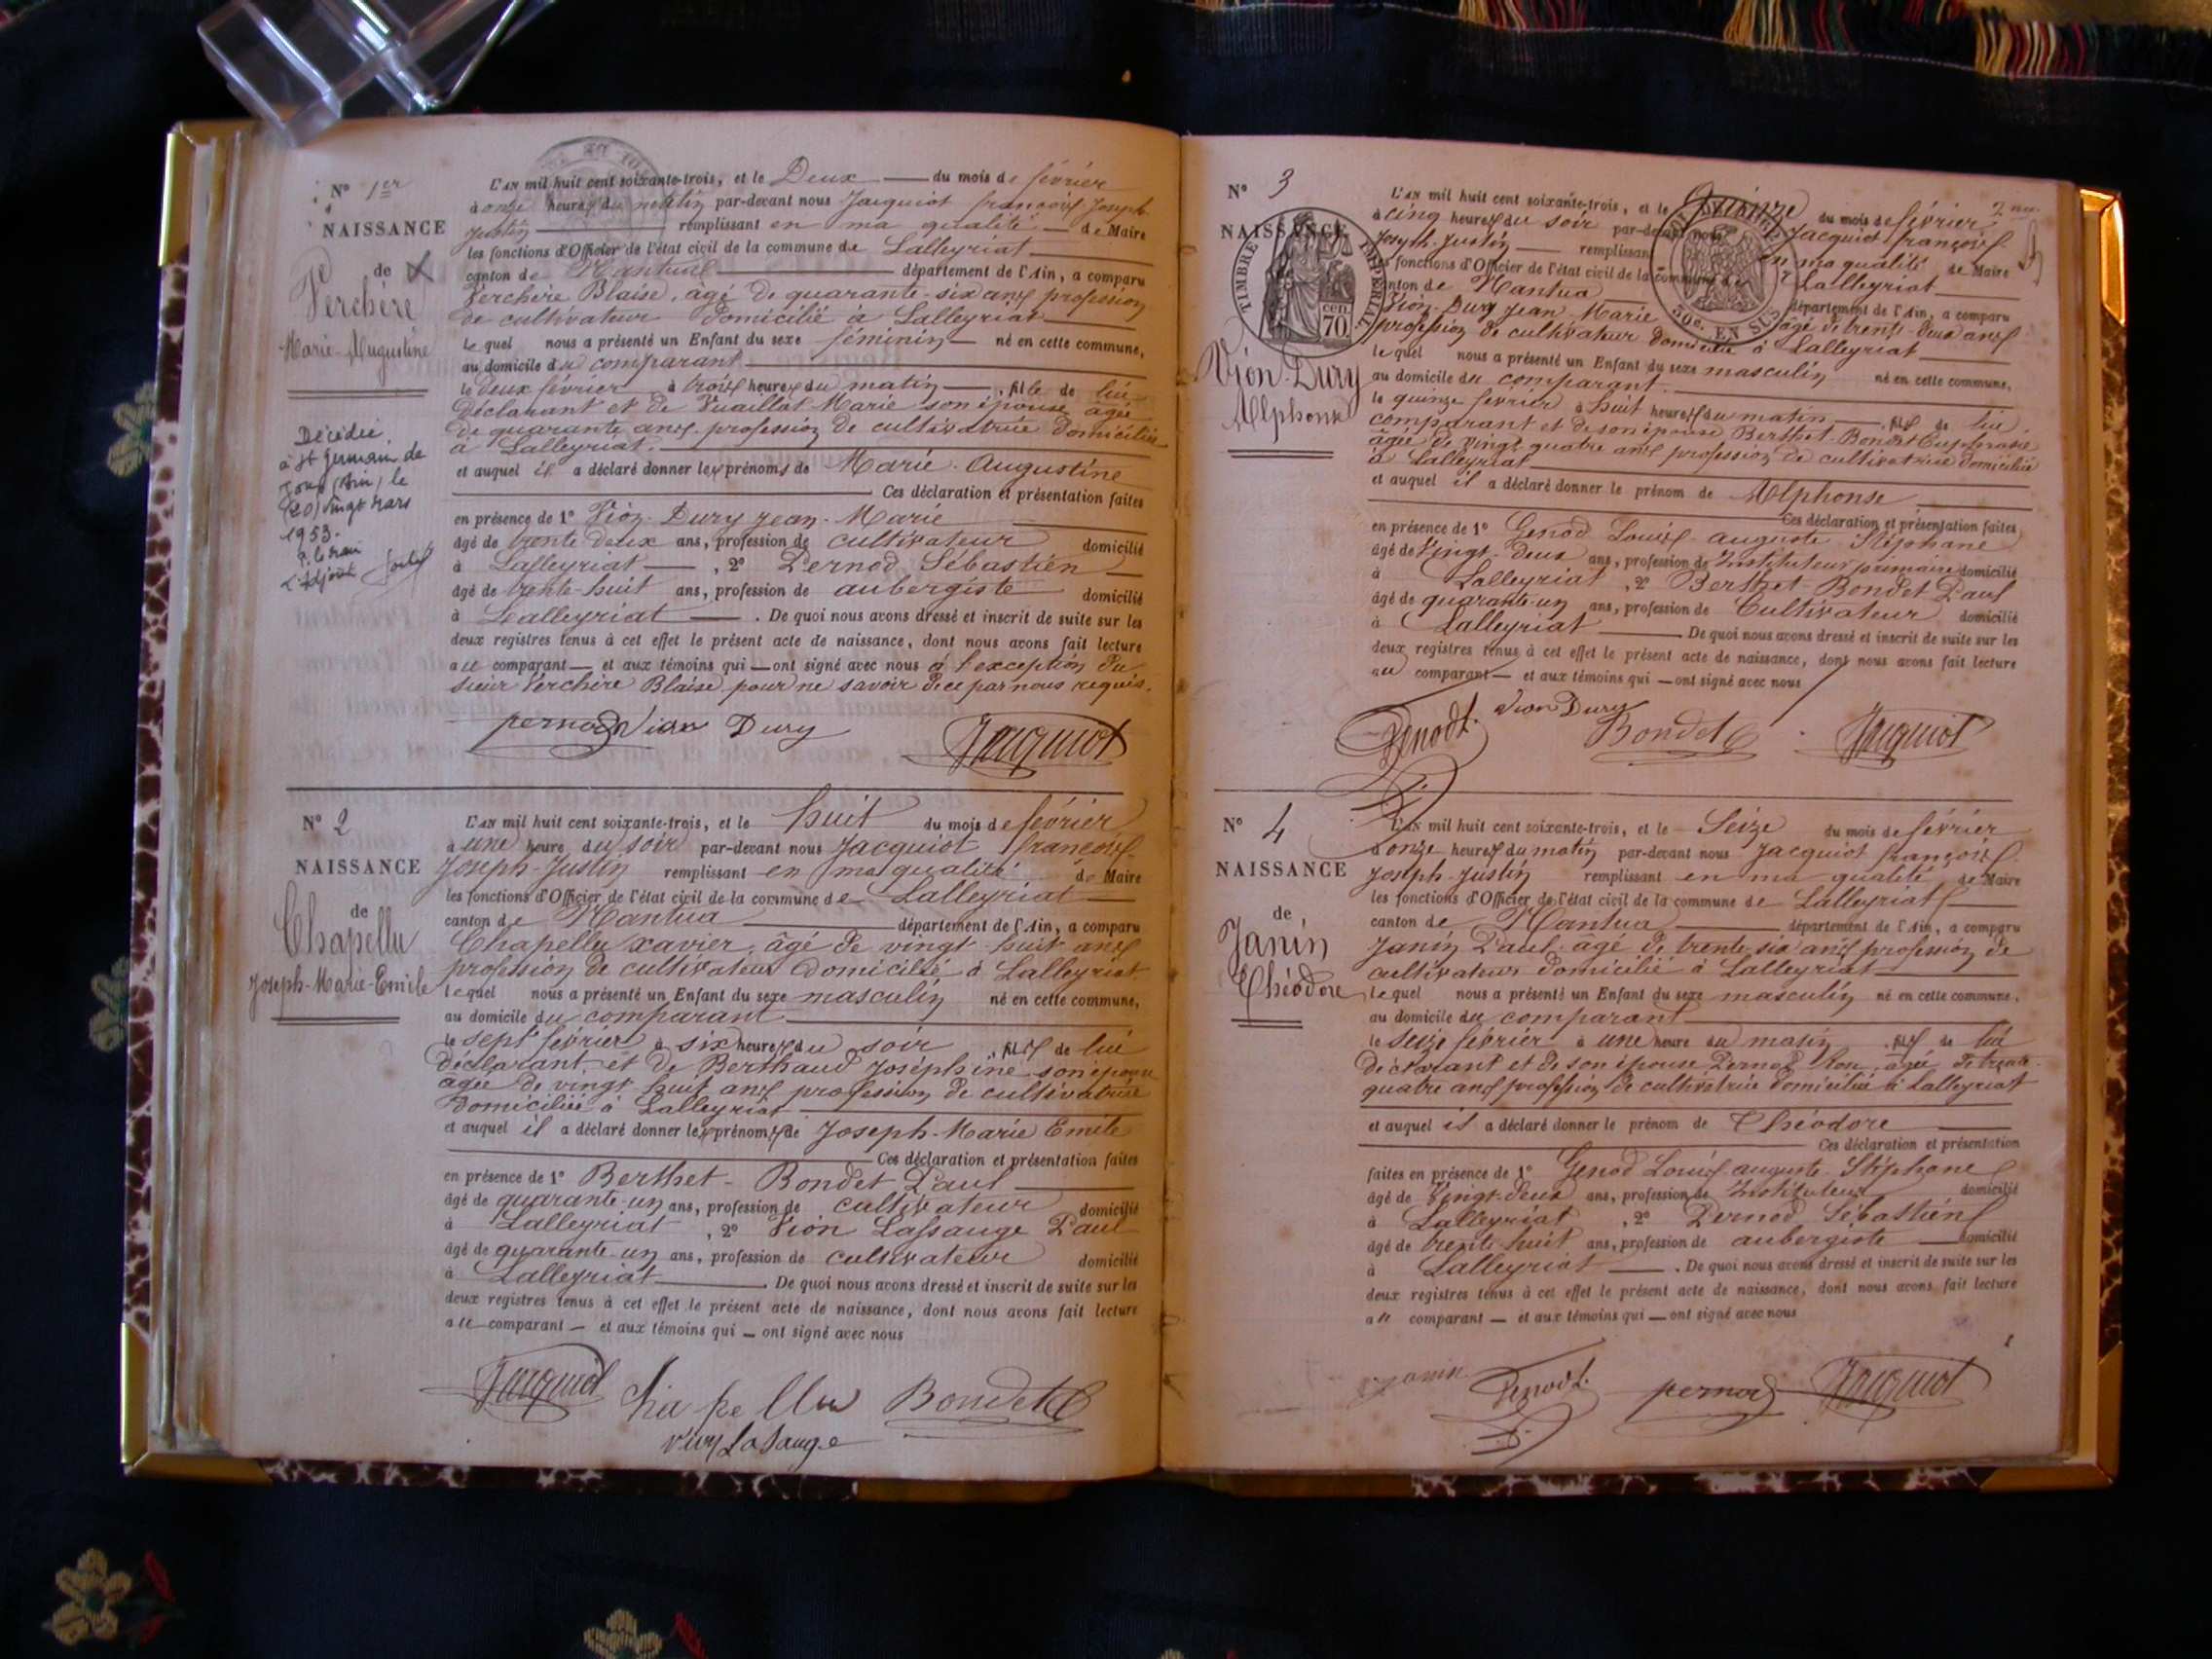 N° 1er
NAISSANCE
de
Verchère
Marie-Augustine
Décédée
à St Germain de
Joux (Ain) le
(20) vingt Mars
1953.
L'Adjoint
L'AN mil huit cent soixante-trois, et le Deux du mois de février
à onze heures du matin par-devant nous Jacquiot françois Joseph
Justin remplissant en ma qualité de Maire
les fonctions d'Officier de l'état civil de la commune de Lalleyriat
canton de Nantua département de l'Ain, a comparu
Verchère Blaise, âgé de quarante-six ans profession
de cultivateur domicilié à Lalleyriat
lequel nous a présenté un Enfant du sexe féminin né en cette commune,
au domicile du comparant
le deux février à trois heures du matin, fille de lui
déclarant et de Vuaillat Marie son épouse âgée
de quarante ans profession de cultivatrice domiciliée
à Lalleyriat.
et auquel il a déclaré donner les prénoms de Marie-Augustine
Ces déclaration et présentation faites
en présence de 1° Vion-Dury Jean-Marie
âgé de trente-deux ans, profession de cultivateur domicilié
à Lalleyriat, 2° Pernod Sébastien
âgé de trente-huit ans, profession de aubergiste domicilié
à Lalleyriat. De quoi nous avons dressé et inscrit de suite sur les
deux registres tenus à cet effet le présent acte de naissance, dont nous avons fait lecture
au comparant et aux témoins qui ont signé avec nous à l'exception du
sieur Verchère Blaise pour ne savoir de ce par nous requis.
pernod Vion Dury Jacquiot
N° 2
NAISSANCE
de
Chapellu
Joseph-Marie-Emile
L'AN mil huit cent soixante-trois, et le huit du mois de février
à une heure du soir par-devant nous Jacquiot françois
Joseph-Justin remplissant en ma qualité de Maire
les fonctions d'Officier de l'état civil de la commune de Lalleyriat
canton de Nantua département de l'Ain, a comparu
Chapellu Xavier, âgé de vingt-huit ans
profession de cultivateur domicilié à Lalleyriat
lequel nous a présenté un Enfant du sexe masculin né en cette commune,
au domicile du comparant
le sept février à six heures du soir, fils de lui
déclarant, et de Berthaud Joséphine son épouse
âgée de vingt huit ans profession de cultivatrice
domiciliée à Lalleyriat
et auquel il a déclaré donner les prénoms de Joseph-Marie Emile
Ces déclaration et présentation faites
en présence de 1° Berthet-Bondet Paul
âgé de quarante-un ans, profession de cultivateur domicilié
à Lalleyriat, 2° Vion Lassauge Paul
âgé de quarante-un ans, profession de cultivateur domicilié
à Lalleyriat. De quoi nous avons dressé et inscrit de suite sur les
deux registres tenus à cet effet le présent acte de naissance, dont nous avons fait lecture
au comparant et aux témoins qui ont signé avec nous
Jacquiot Chapellu Bondet
Lasauge
N° 3
NAISSANCE
TIMBRE IMPERIAL
cen. 70
Vion-Dury
Alphonse
50c. EN SUS
L'AN mil huit cent soixante-trois, et le Quinze du mois de février
à cinq heures du soir par-devant nous Jacquiot françois
Joseph-Justin remplissant en ma qualité de Maire
les fonctions d'Officier de l'état civil de la commune de Lalleyriat
canton de Nantua département de l'Ain, a comparu
Vion-Dury Jean-Marie âgé de trente-deux ans
profession de cultivateur domicilié à Lalleyriat
lequel nous a présenté un Enfant du sexe masculin né en cette commune,
au domicile du comparant
le quinze février à huit heures du matin, fils de lui
comparant et de son épouse Berthet-Bondet Euphrasie
âgée de vingt quatre ans profession de cultivatrice domiciliée
à Lalleyriat
et auquel il a déclaré donner le prénom de Alphonse
Ces déclaration et présentation faites
en présence de 1° Genod Louis-auguste Stéphane
âgé de vingt-deux ans, profession de Instituteur primaire domicilié
à Lalleyriat, 2° Berthet-Bondet Paul
âgé de quarante-un ans, profession de Cultivateur domicilié
à Lalleyriat. De quoi nous avons dressé et inscrit de suite sur les
deux registres tenus à cet effet le présent acte de naissance, dont nous avons fait lecture
au comparant et aux témoins qui ont signé avec nous
Genod L. Vion Dury Bondet Jacquiot
N° 4
NAISSANCE
de
Janin
Théodore
L'AN mil huit cent soixante-trois, et le Seize du mois de février
à onze heures du matin par-devant nous Jacquiot françois
Joseph-Justin remplissant en ma qualité de Maire
les fonctions d'Officier de l'état civil de la commune de Lalleyriat
canton de Nantua département de l'Ain, a comparu
Janin Paul âgé de trente six ans profession de
cultivateur domicilié à Lalleyriat
lequel nous a présenté un Enfant du sexe masculin né en cette commune,
au domicile du comparant
le seize février à une heure du matin, fils de lui
déclarant et de son épouse Pernod âgée de trente-
quatre ans profession de cultivatrice domiciliée à Lalleyriat
et auquel il a déclaré donner le prénom de Théodore
Ces déclaration et présentation
faites en présence de 1° Genod Louis-auguste Stéphane
âgé de vingt-deux ans, profession de Instituteur domicilié
à Lalleyriat, 2° Pernod Sébastien
âgé de trente-huit ans, profession de aubergiste domicilié
à Lalleyriat. De quoi nous avons dressé et inscrit de suite sur les
deux registres tenus à cet effet le présent acte de naissance, dont nous avons fait lecture
au comparant et aux témoins qui ont signé avec nous
janin Genod L. pernod Jacquiot